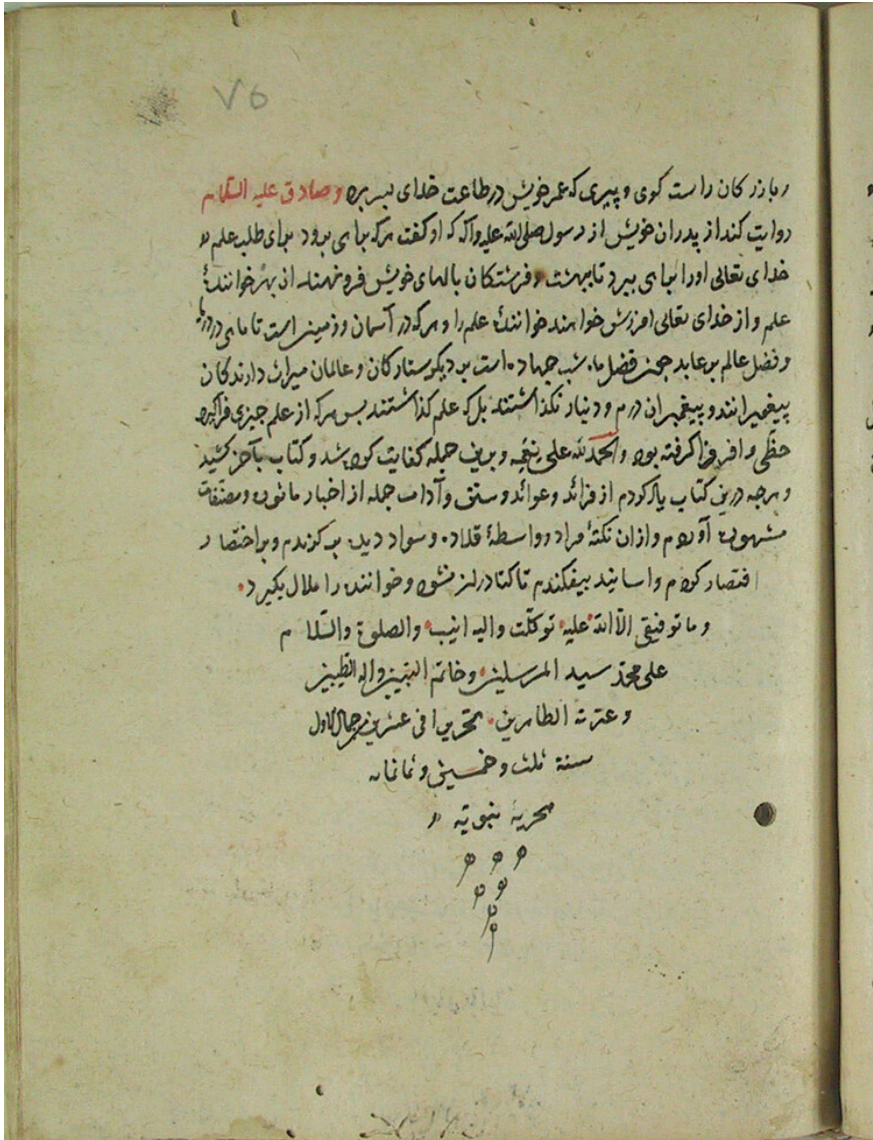 ٧٥
و بازرکان راست کوی و پیری که عمر خویش در طاعت خدای بسر برد و صادق علیه السّلام
روایت کند از پدران خویش از رسول صلی الله علیه وآله که او کفت هرکه براهی برود برای طلب علم
خدای تعالی او را براهی ببرد تا ببهشت و فرشتکان بالهای خویش فرو نهند از بهر خوانندۀ
علم و از خدای تعالی امرزش خواهند خوانندۀ علم را و هرکه در آسمان و زمین است تا ماهی در دریا
و فضل عالم بر عابد جون فضل ماه شب جهارده است بر دیکر ستارکان و عالمان میراث دارندکان
پیغمبرانند و پیغمبران درم و دینار نکذاشتند بل که علم کذاشتند بس هرکه از علم جیزی فراکیرد
حظّی وافر فراکرفته بود والحمد لله علی نعمه و برین جمله کفایت کرده شد و کتاب بآخر کشید
و هرجه درین کتاب یاد کردم از فوائد و عوائد و سنن و آداب جمله از اخبار ماثوره و مصنّفات
مشهوره آوردم و ازان نکتۀ مراد و واسطۀ قلاده و سواد دیده بر کزیدم و بر اختصار
اقتصار کردم و اسانید بیفکندم تا کتاب دراز نشود و خواننده را ملال نکیرد
وما توفیقی الّا بالله علیه توکّلت والیه انیب والصلوة والسّلام
علی محمّد سید المرسلین وخاتم النبیین واله الطیبین
وعترته الطاهرین تحریرا فی عشرین جمادی الاول
سنة ثلث وخمسین وثمانمائه
هجریة نبویّه